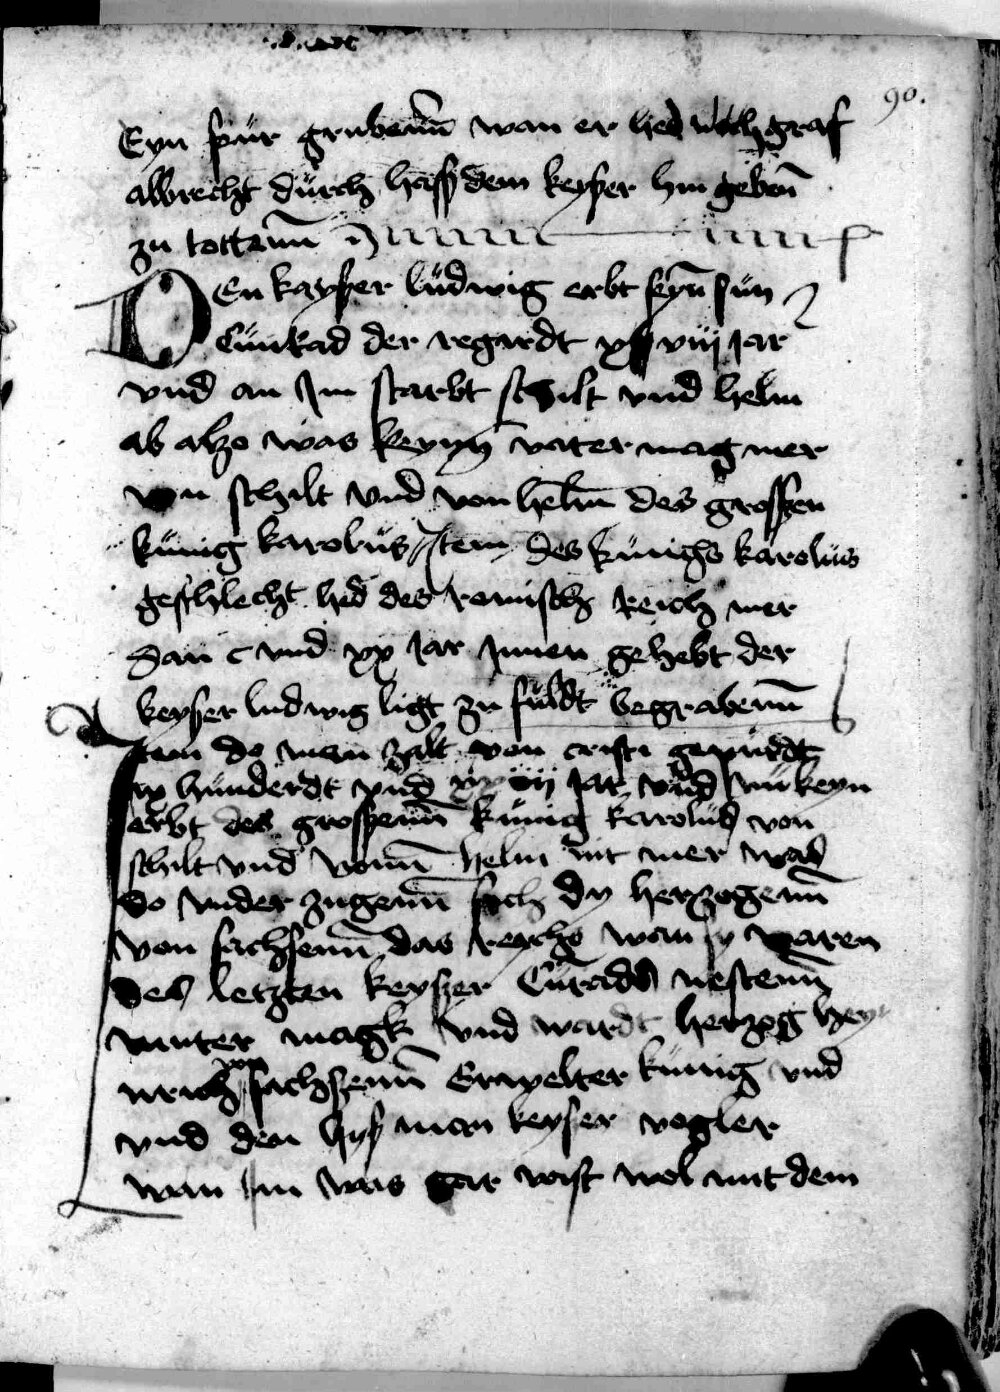 90.
Eyn für grubenn wan er hed nechgraf
albrecht dürch hass dem keyser hin geben
zu tottenn
DEn kayser lüdwig erbt seyn sün
Cünkad der regirdt viij jar
vnd an Im starbt schilt vnd helm
ab alzo was keyn vater mag mer
von schilt vnd von helm des grossen
künig karolus Item des künigs karolus
geschlecht hed des romisch Reich mer
dan c vnd xx Jar Innen gehebt der
keyser ludwig ligt zu füldt begrabenn
Item do man zalt von cristi gepürdt
ix hünderdt vnd Jar vnd nü keyn
erbt des grossenn künig karolus von
schilt vnd vonn helm nit mer was
do vnder zugenn sich dy herzogenn
von sachsenn das reychs wan sy waren
des letzten keyser Cünrads nestenn
vatter magk vnd wardt herzog hey
nrich von sachsenn Erwelter künig vnd
vnd den hyss man keyser vogler
wan Im was gar vast wol mit dem